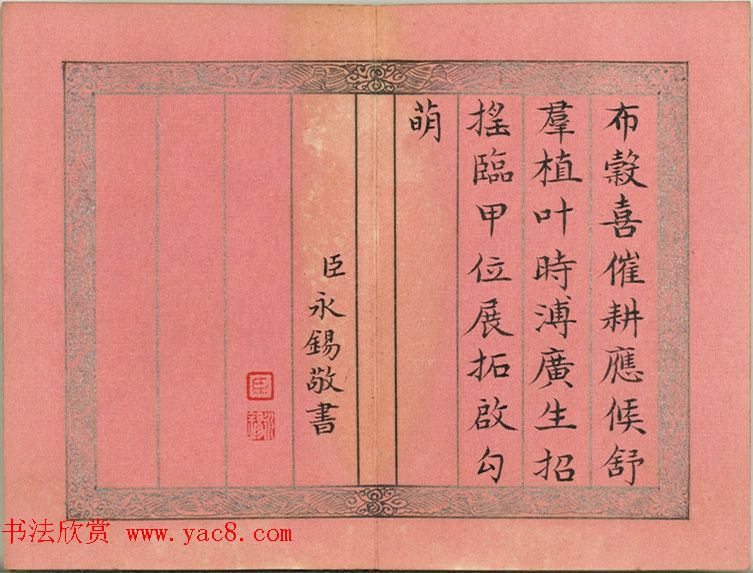 布穀喜催耕應候舒
羣植叶時溥廣生招
搖臨甲位展拓啟勾
萌
臣永錫敬書
臣
永錫
书法欣赏 www.yac8.com